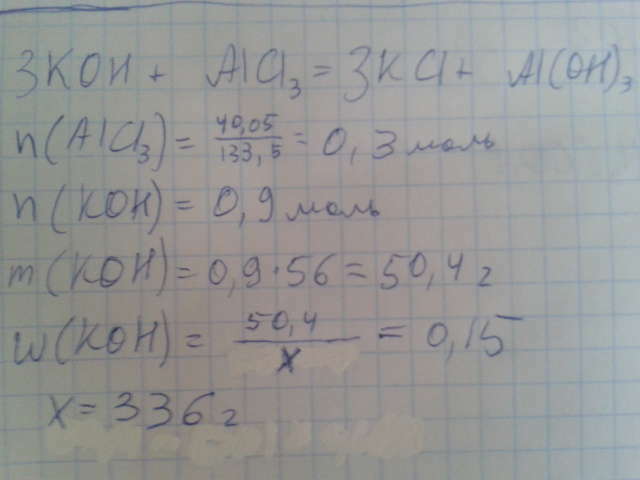 3KOH + AlCl₃ = 3KCl + Al(OH)₃
n(AlCl₃) = 40,05/133,5 = 0,3 моль
n(KOH) = 0,9 моль
m(KOH) = 0,9·56 = 50,4 г
w(KOH) = 50,4/x = 0,15
x = 336 г